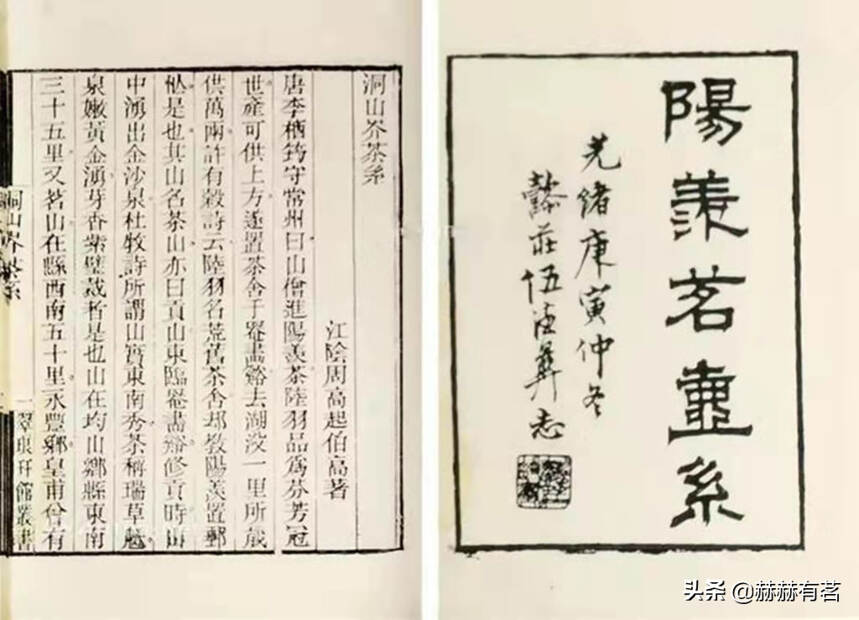 陽羨茗壷系
光緒庚寅仲冬
懿莊伍德彝志
洞山岕茶系
江陰周高起伯高著
唐李栖筠守常州日山僧進陽羨茶陸羽品為芬芳冠
世產可供上方遂置茶舍于罨畫谿去湖没一里所歲
供萬兩許有穀詩云陸羽名荒舊茶舍却教陽羨置郵
忙是也其山名茶山亦曰貢山東臨罨畫谿修貢時山
中湧出金沙泉杜牧詩所謂山實東南秀茶稱瑞草魁
泉嫩黃金湧芽香紫璧裁者是也山在均山鄉縣東南
三十五里又茗山在縣西南五十里永豐鄉皇甫曾有
洞山岕茶系
一 翠琅玕館叢書
头条 @赫赫有茗